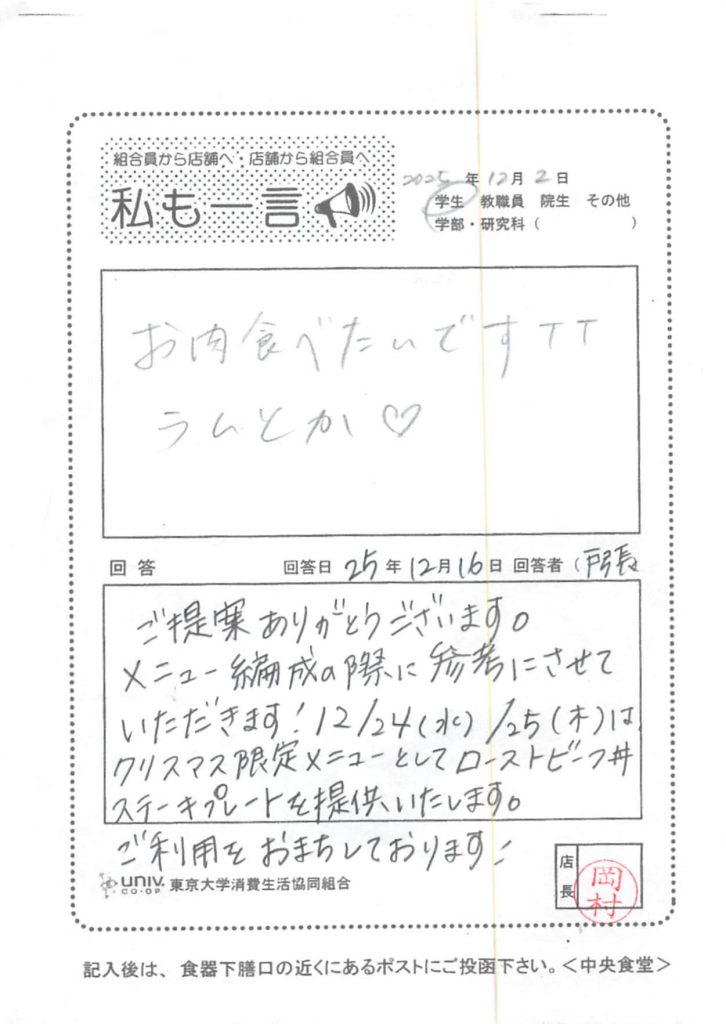 組合員から店舗へ・店舗から組合員へ
私も一言
2025年12月2日
学生 教職員 院生 その他
学部・研究科（　　　　　）
お肉食べたいですTT
ラムとか♡
回答 回答日 25年12月16日 回答者（戸張
ご提案ありがとうございます。
メニュー編成の際に参考にさせて
いただきます！12/24(水)/25(木)は
クリスマス限定メニューとしてローストビーフ丼
ステーキプレートを提供いたします。
ご利用をおまちしております！
UNIV. CO-OP 東京大学消費生活協同組合
店長
岡村
記入後は、食器下膳口の近くにあるポストにご投函下さい。＜中央食堂＞